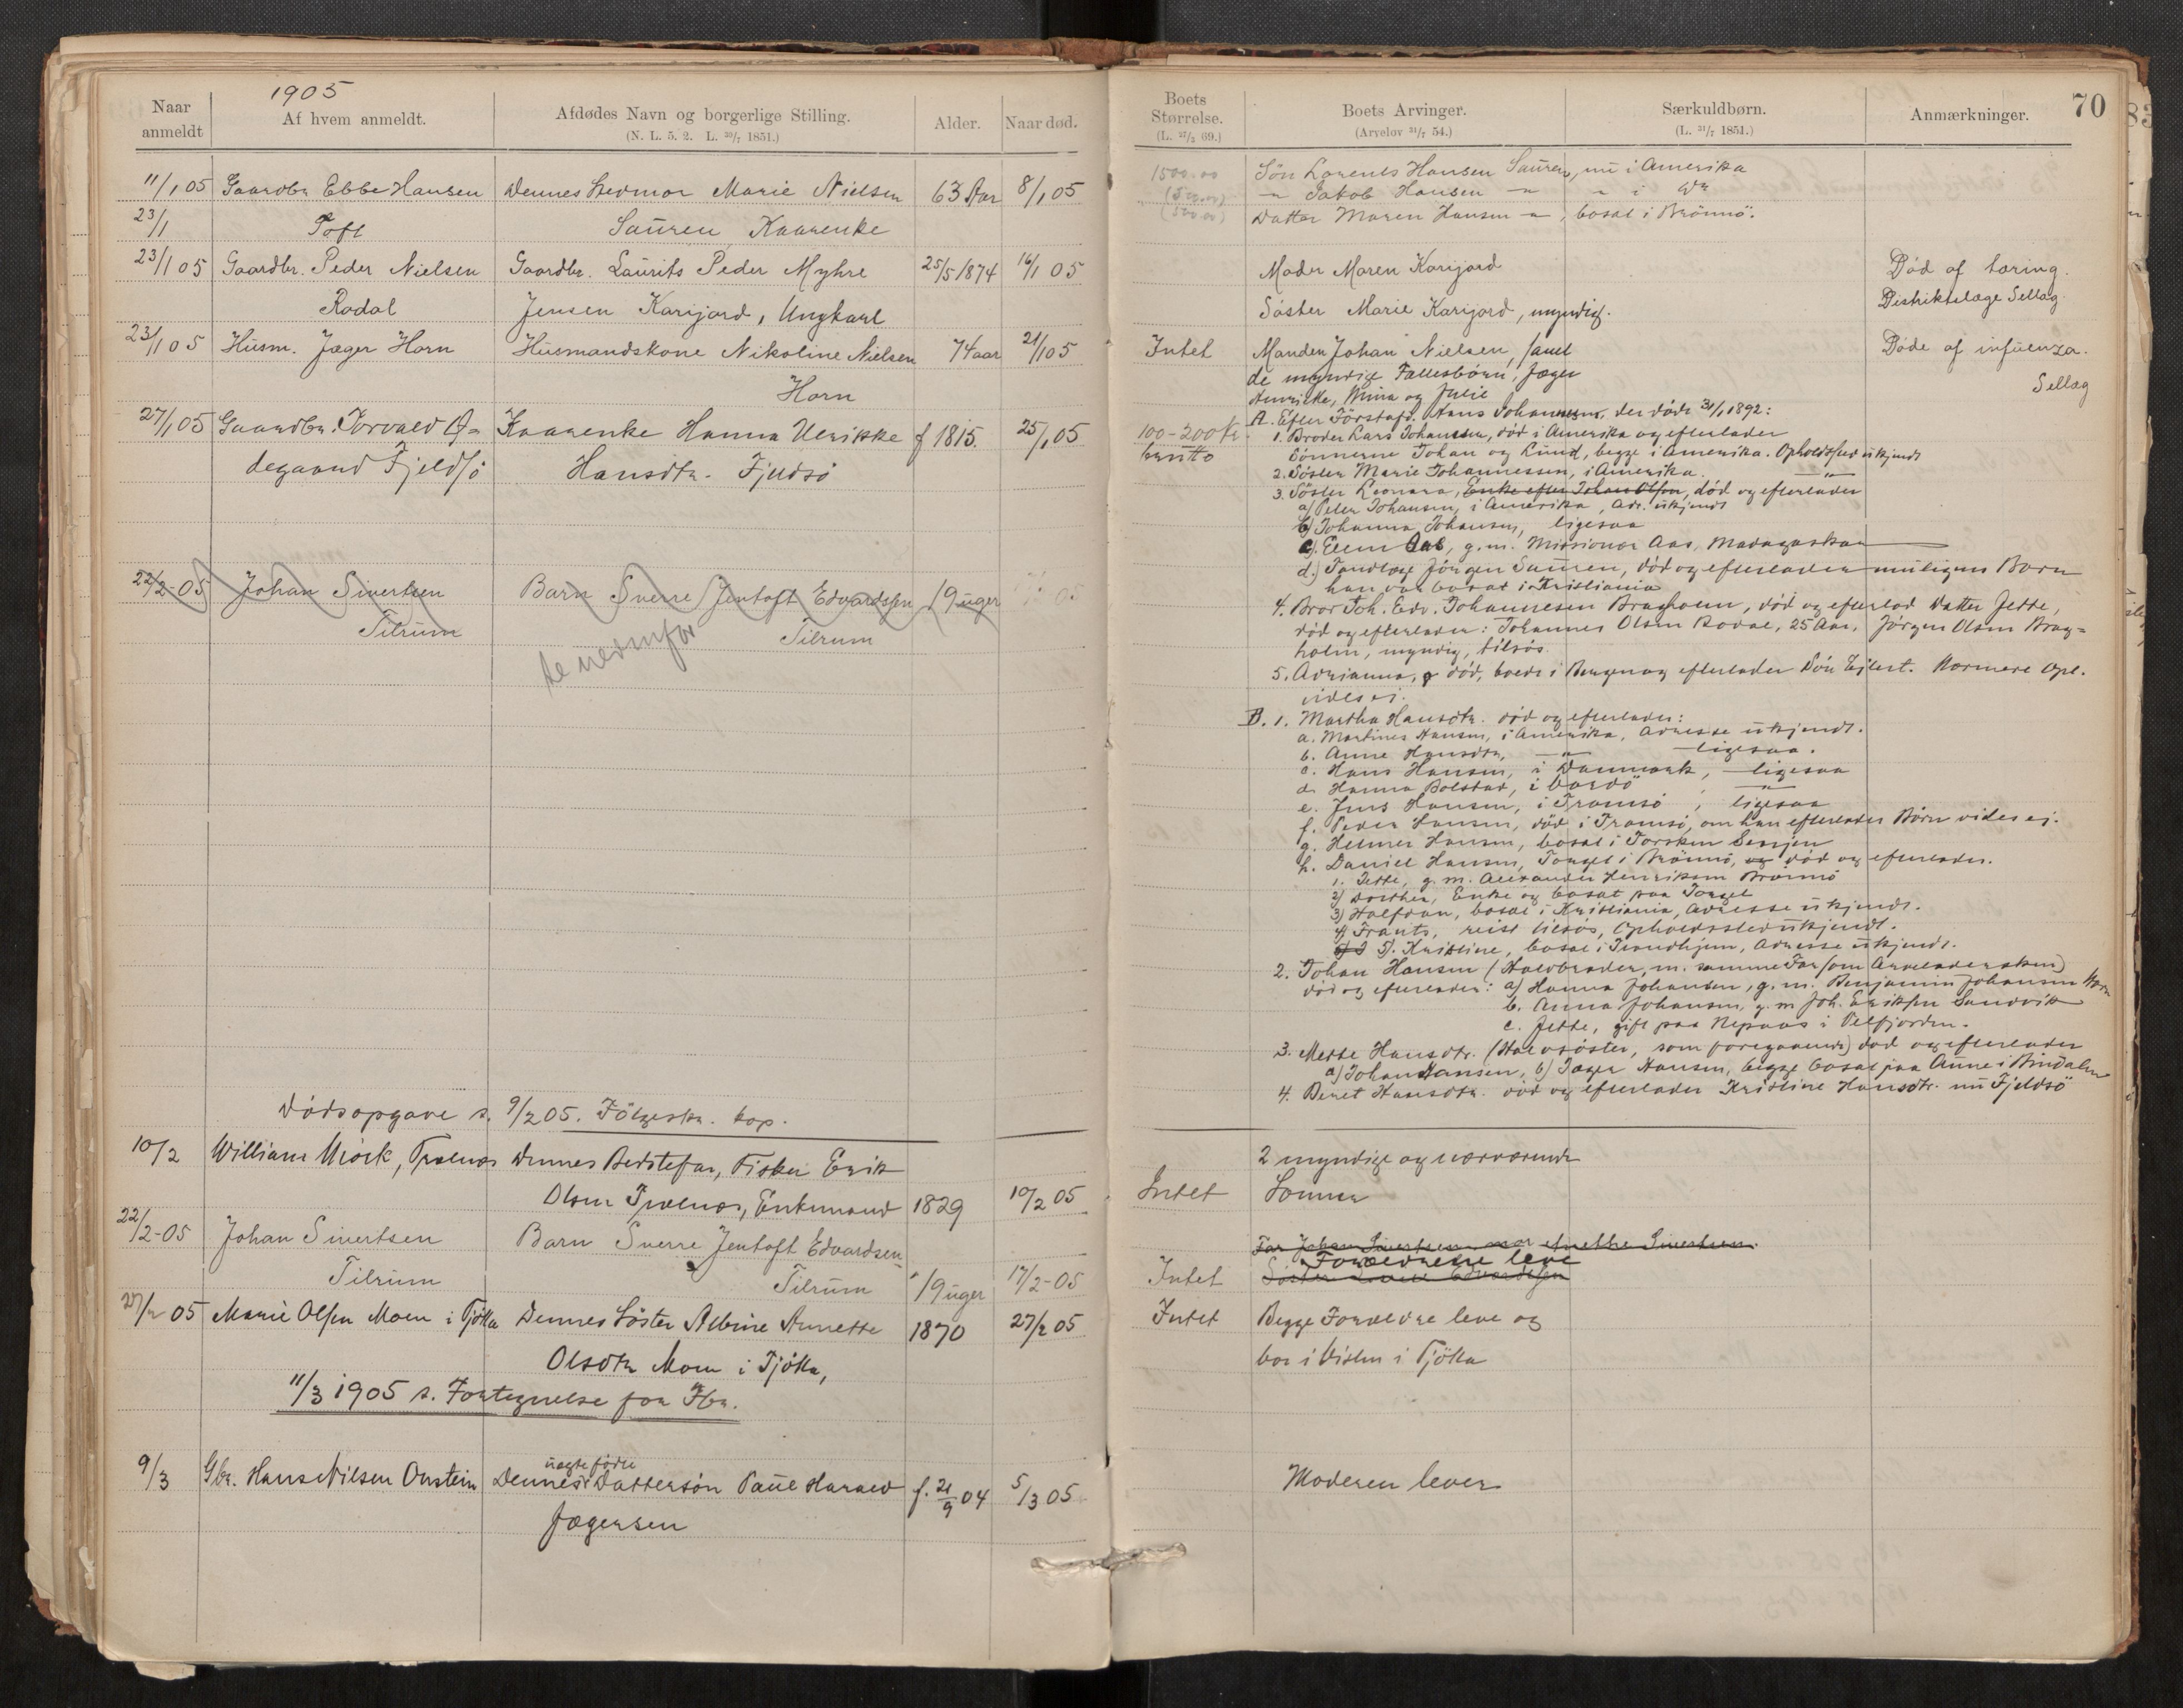 1905
Naar anmeldt
Af hvem anmeldt.
Afdødes Navn og borgerlige Stilling.
(N. L. 5. 2. L. 30/7 1851.)
Alder.
Naar død.
11/1 05 Gaardbr Ebbe Hansen Dennes Stedmor Marie Nielsen 63 Aar 8/1 05
23/1 Toft Sauren Kaarenke
23/1 05 Gaardbr. Peder Nielsen Gaardbr. Laurits Peder Myhre 25/5 1874 16/1 05
Rodal Jensen Karijord, Ungkarl
23/1 05 Husm. Jæger Horn Husmandskone Nikoline Nielsen 74 aar 21/1 05
Horn
27/1 05 Gaardbr. Torvald Ø- Kaarenke Hanna Ulrikke f 1815. 25/1 05
degaard Fjeldsø Hansdtr. Fjeldsø
22/2-05 Johan Sivertsen Barn Sverre Jentoft Edvardsen 19 uger
Tilrum Tilrum
se nedenfor
Dødsopgave s. 9/2 05. Følgeskr. kop.
10/2 William Mörk, Trælnes Dennes Bedstefar, Fisker Erik
Olsen Trælnes, Enkemand 1829 10/2 05
22/2-05 Johan Sivertsen Barn Sverre Jentoft Edvardsen
Tilrum Tilrum 19 uger 17/2-05
27/2 05 Marie Olsen Moen i Tjötta Dennes Söster Albine Annette 1870 27/2 05
Olsdtr Moen i Tjötta,
11/3 1905 s. Fortegnelse for Fbr.
uægtefödte
9/3 Gbr. Hans Nilsen Onstein Dennes Dattersön Paul Harald f. 21/9 04 5/3 05
Jægersen
70
Boets Størrelse.
(L. 27/3 69.)
Boets Arvinger.
(Arvelov 31/7 54.)
Særkuldbørn.
(L. 31/7 1851.)
Anmærkninger.
1500.00 Søn Lorents Hansen Sauren, nu i Amerika
(500.00) " Jakob Hansen " " i Do
(500.00) Datter Maren Hansen ", bosat i Brönnö.
Moder Maren Karijord Död af tæring.
Søster Marie Karijord, myndig. Distriktslæge Sellæg.
Intet Manden Johan Nielsen, samt Döde af influenza.
de myndige Fællesbörn, Jæger Sellæg
Henrikke, Mina og Julie
A. Efter Förstafd. Hans Johannesen, der döde 31/1 1892:
100-200 Kr. 1. Broder Lars Johansen, død i Amerika og efterlader
brutto Sønnerne Johan og Lund, begge i Amerika. Opholdssted ukjendt
2. Söster Marie Johannessen, i Amerika. "
3. Söster Leonara, Enke efter Johan Olsen, död og efterlader
a) Peter Johansen, i Amerika, Adr. ukjendt
b) Johanna Johansen, ligesaa
c). Elen Aas, g.m. Missionær Aas, Madagaskar
d.) Tandlæge Jörgen Sauren, död og efterlader muligens Børn
han var bosat i Kristiania
4. Bror Joh. Edv. Johannesen Bragholm, död og efterlod Datter Jette,
död og efterlader: Johannes Olsen Rodal, 25 Aar, Jörgen Olsen Brag-
holm, myndig, tilsös.
5. Adrianna, död, boede i Bergen og efterlader Sön Ejlert. Nærmere Opl.
vides ej.
B. 1. Martha Hansdtr. död og efterlader:
a. Martines Hansen, i Amerika, Adresse ukjendt.
b. Anne Hansdtr, " ligesaa.
c. Hans Hansen, i Danmark, ligesaa
d. Hanna Bolstad, i Vardö "
e. Jens Hansen, i Tromsö, ligesaa
f. Peder Hansen, död i Tromsö, om han efterlader Börn vides ej.
g. Helmer Hansen, bosat i Torsken Senjen
h. Daniel Hansen, Torget i Brönnö, død og efterlader.
1. Jette, g.m. Alexander Henriksen Brönnö
2) Dorthea, Enke og bosat paa Torget
3) Halfdan, bosat i Kristiania, Adresse ukjendt.
4) Frants, reist tilsös, Opholdssted ukjendt.
5). Kristine, bosat i Trondhjem, Adresse ukjendt.
2. Johan Hansen (Halvbroder, m. samme Far som Arveladersken)
död og efterlader: a) Hanna Johansen, g.m. Benjamin Johansen Horn
b. Anna Johansen, g.m Joh. Eriksen Sandvik
c. Jette, gift paa Nepaas i Velfjorden.
3. Mette Hansdtr. (Halvsöster, som foregaaende) död og efterlader
a) Johan Hansen, b) Jæger Hansen, begge bosat paa Aune i Bindalen
4. Beret Hansdtr. död og efterlader Kristine Hansdtr. nu Fjeldsö
2 myndige og nærværende
Intet Sønner
Far Johan Sivertsen, mor Anethe Sivertsen.
Forældrene leve
Intet Söster Edvardsen
Intet Begge Forældre leve og
bor i Visten i Tjötta
Moderen lever